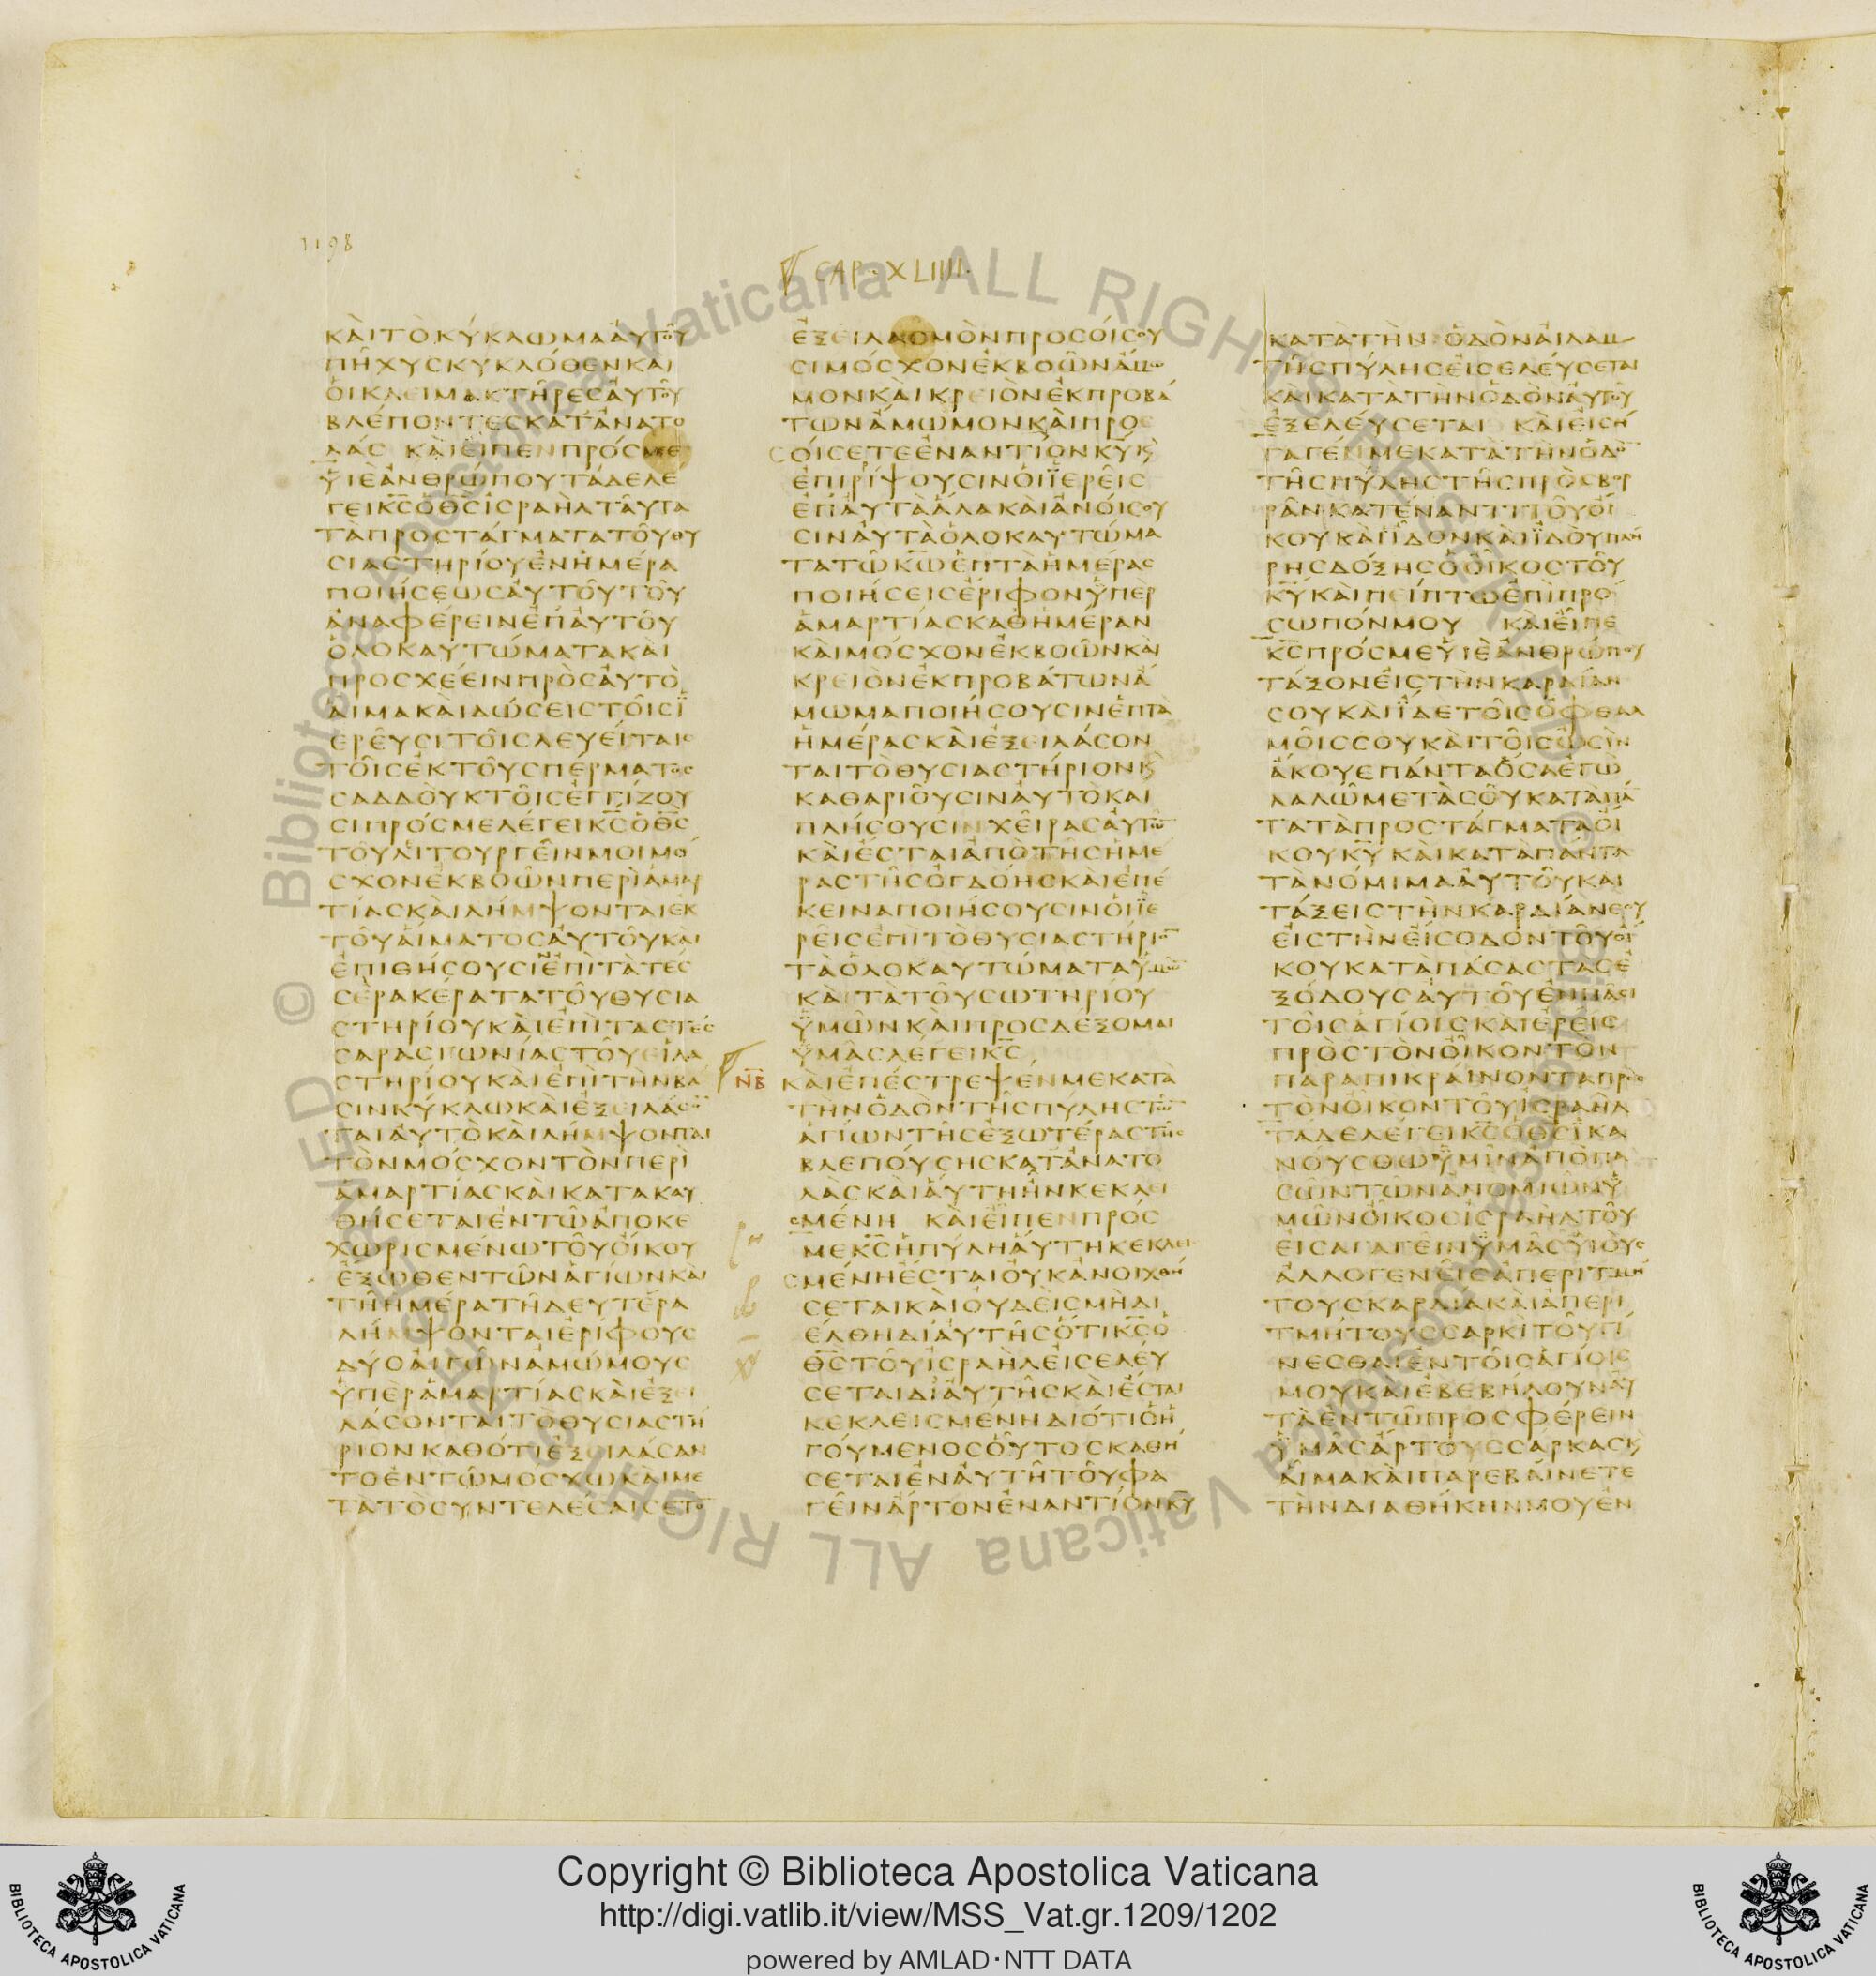 1198
CAP. XLIIII.
ΚΑΙΤΟΚΥΚΛΩΜΑΑΥΤΟΥ
ΠΗΧΥΣΚΥΚΛΟΘΕΝΚΑΙ
ΟΙΚΛΕΙΜΑΚΤΗΡΕΣΑΥΤΟΥ
ΒΛΕΠΟΝΤΕΣΚΑΤΑΝΑΤΟ
ΛΑΣ ΚΑΙΕΙΠΕΝΠΡΟΣΜΕ
ΥΙΕΑΝΘΡΩΠΟΥΤΑΔΕΛΕ
ΓΕΙΚ̅Σ̅ΟΘ̅Σ̅ΙΣΡΑΗΛΤΑΥΤΑ
ΤΑΠΡΟΣΤΑΓΜΑΤΑΤΟΥΘΥ
ΣΙΑΣΤΗΡΙΟΥΕΝΗΜΕΡΑ
ΠΟΙΗΣΕΩΣΑΥΤΟΥΤΟΥ
ΑΝΑΦΕΡΕΙΝΕΠΑΥΤΟΥ
ΟΛΟΚΑΥΤΩΜΑΤΑΚΑΙ
ΠΡΟΣΧΕΕΙΝΠΡΟΣΑΥΤΟ
ΑΙΜΑΚΑΙΔΩΣΕΙΣΤΟΙΣΙ
ΕΡΕΥΣΙΤΟΙΣΛΕΥΕΙΤΑΙΣ
ΤΟΙΣΕΚΤΟΥΣΠΕΡΜΑΤΟΣ
ΣΑΔΔΟΥΚΤΟΙΣΕΓΓΙΖΟΥ
ΣΙΠΡΟΣΜΕΛΕΓΕΙΚ̅Σ̅ΟΘ̅Σ̅
ΤΟΥΛΙΤΟΥΡΓΕΙΝΜΟΙΜΟ
ΣΧΟΝΕΚΒΟΩΝΠΕΡΙΑΜΑΡ
ΤΙΑΣΚΑΙΛΗΜΨΟΝΤΑΙΕΚ
ΤΟΥΑΙΜΑΤΟΣΑΥΤΟΥΚΑΙ
ΕΠΙΘΗΣΟΥΣΙΝΕΠΙΤΑΤΕΣ
ΣΕΡΑΚΕΡΑΤΑΤΟΥΘΥΣΙΑ
ΣΤΗΡΙΟΥΚΑΙΕΠΙΤΑΣΤΕΣ
ΣΑΡΑΣΓΩΝΙΑΣΤΟΥΕΙΛΑ
ΣΤΗΡΙΟΥΚΑΙΕΠΙΤΗΝΒΑ
ΣΙΝΚΥΚΛΩΚΑΙΕΞΕΙΛΑΣΟ̅
ΤΑΙΑΥΤΟΚΑΙΛΗΜΨΟΝΤΑΙ
ΤΟΝΜΟΣΧΟΝΤΟΝΠΕΡΙ
ΑΜΑΡΤΙΑΣΚΑΙΚΑΤΑΚΑΥ
ΘΗΣΕΤΑΙΕΝΤΩΑΠΟΚΕ
ΧΩΡΙΣΜΕΝΩΤΟΥΟΙΚΟΥ
ΕΞΩΘΕΝΤΩΝΑΓΙΩΝΚΑΙ
ΤΗΗΜΕΡΑΤΗΔΕΥΤΕΡΑ
ΛΗΜΨΟΝΤΑΙΕΡΙΦΟΥΣ
ΔΥΟΑΙΓΩΝΑΜΩΜΟΥΣ
ΥΠΕΡΑΜΑΡΤΙΑΣΚΑΙΕΞΕΙ
ΛΑΣΟΝΤΑΙΤΟΘΥΣΙΑΣΤΗ
ΡΙΟΝΚΑΘΟΤΙΕΞΕΙΛΑΣΑΝ
ΤΟΕΝΤΩΜΟΣΧΩΚΑΙΜΕ
ΤΑΤΟΣΥΝΤΕΛΕΣΑΙΣΕΤΟ̅
ΕΞΕΙΛΑΣΜΟΝΠΡΟΣΟΙΣΟΥ
ΣΙΜΟΣΧΟΝΕΚΒΟΩΝΑΜΩ
ΜΟΝΚΑΙΚΡΕΙΟΝΕΚΠΡΟΒΑ
ΤΩΝΑΜΩΜΟΝΚΑΙΠΡΟΣ
ΟΙΣΕΤΕΕΝΑΝΤΙΟΝΚ̅Υ̅Κ
ΕΠΙΡΙΨΟΥΣΙΝΟΙΙΕΡΕΙΣ
ΕΠΑΥΤΑΑΛΑΚΑΙΑΝΟΙΣΟΥ
ΣΙΝΑΥΤΑΟΛΟΚΑΥΤΩΜΑ
ΤΑΤΩΚ̅Ω̅ΕΠΤΑΗΜΕΡΑΣ
ΠΟΙΗΣΕΙΣΕΡΙΦΟΝΥΠΕΡ
ΑΜΑΡΤΙΑΣΚΑΘΗΜΕΡΑΝ
ΚΑΙΜΟΣΧΟΝΕΚΒΟΩΝΚΑΙ
ΚΡΕΙΟΝΕΚΠΡΟΒΑΤΩΝΑ
ΜΩΜΑΠΟΙΗΣΟΥΣΙΝΕΠΤΑ
ΗΜΕΡΑΣΚΑΙΕΞΕΙΛΑΣΟΝ
ΤΑΙΤΟΘΥΣΙΑΣΤΗΡΙΟΝΚ
ΚΑΘΑΡΙΟΥΣΙΝΑΥΤΟΚΑΙ
ΠΛΗΣΟΥΣΙΝΧΕΙΡΑΣΑΥΤΩ̅
ΚΑΙΕΣΤΑΙΑΠΟΤΗΣΗΜΕ
ΡΑΣΤΗΣΟΓΔΟΗΣΚΑΙΕΠΕ
ΚΕΙΝΑΠΟΙΗΣΟΥΣΙΝΟΙΙΕ
ΡΕΙΣΕΠΙΤΟΘΥΣΙΑΣΤΗΡΙΟ̅
ΤΑΟΛΟΚΑΥΤΩΜΑΤΑΥΜΩ̅
ΚΑΙΤΑΤΟΥΣΩΤΗΡΙΟΥ
ΥΜΩΝΚΑΙΠΡΟΣΔΕΞΟΜΑΙ
ΥΜΑΣΛΕΓΕΙΚ̅Σ̅
Ν̅Β̅ ΚΑΙΕΠΕΣΤΡΕΨΕΝΜΕΚΑΤΑ
ΤΗΝΟΔΟΝΤΗΣΠΥΛΗΣΤΩ̅
ΑΓΙΩΝΤΗΣΕΞΩΤΕΡΑΣΤΗΣ
ΒΛΕΠΟΥΣΗΣΚΑΤΑΝΑΤΟ
ΛΑΣΚΑΙΑΥΤΗΗΝΚΕΚΛΕΙ
ΣΜΕΝΗ ΚΑΙΕΙΠΕΝΠΡΟΣ
ΜΕΚ̅Σ̅ΗΠΥΛΗΑΥΤΗΚΕΚΛΕΙ
ΣΜΕΝΗΕΣΤΑΙΟΥΚΑΝΟΙΧΘΗ
ΣΕΤΑΙΚΑΙΟΥΔΕΙΣΜΗΔΙ
ΕΛΘΗΔΙΑΥΤΗΣΟΤΙΚ̅Σ̅Ο
Θ̅Σ̅ΤΟΥΙΣΡΑΗΛΕΙΣΕΛΕΥ
ΣΕΤΑΙΔΙΑΥΤΗΣΚΑΙΕΣΤΑΙ
ΚΕΚΛΕΙΣΜΕΝΗΔΙΟΤΙΟΗ
ΓΟΥΜΕΝΟΣΟΥΤΟΣΚΑΘΗ
ΣΕΤΑΙΕΝΑΥΤΗΤΟΥΦΑ
ΓΕΙΝΑΡΤΟΝΕΝΑΝΤΙΟΝΚ̅Υ̅
ΚΑΤΑΤΗΝ ΟΔΟΝΑΙΛΑΜ
ΤΗΣΠΥΛΗΣΕΙΣΕΛΕΥΣΕΤΑΙ
ΚΑΙΚΑΤΑΤΗΝΟΔΟΝΑΥΤΟΥ
ΕΞΕΛΕΥΣΕΤΑΙ ΚΑΙΕΙΣΗ
ΓΑΓΕΝΜΕΚΑΤΑΤΗΝΟΔΟ̅
ΤΗΣΠΥΛΗΣΤΗΣΠΡΟΣΒΟΡ
ΡΑΝΚΑΤΕΝΑΝΤΙΤΟΥΟΙ
ΚΟΥΚΑΙΙΔΟΝΚΑΙΙΔΟΥΠΛΗ
ΡΗΣΔΟΞΗΣΟΟΙΚΟΣΤΟΥ
Κ̅Υ̅ΚΑΙΠΕΙΠΤΩΕΠΙΠΡΟ
ΣΩΠΟΝΜΟΥ ΚΑΙΕΙΠΕ
Κ̅Σ̅ΠΡΟΣΜΕΥΙΕΑΝΘΡΩΠΟΥ
ΤΑΞΟΝΕΙΣΤΗΝΚΑΡΔΙΑΝ
ΣΟΥΚΑΙΙΔΕΤΟΙΣΟΦΘΑΛ
ΜΟΙΣΣΟΥΚΑΙΤΟΙΣΩΣΙΝ
ΑΚΟΥΕΠΑΝΤΑΟΣΑΕΓΩ
ΛΑΛΩΜΕΤΑΣΟΥΚΑΤΑΠΑ
ΤΑΤΑΠΡΟΣΤΑΓΜΑΤΑΟΙ
ΚΟΥΚ̅Υ̅ΚΑΙΚΑΤΑΠΑΝΤΑ
ΤΑΝΟΜΙΜΑΑΥΤΟΥΚΑΙ
ΤΑΞΕΙΣΤΗΝΚΑΡΔΙΑΝΣΟΥ
ΕΙΣΤΗΝΕΙΣΟΔΟΝΤΟΥΟΙ
ΚΟΥΚΑΤΑΠΑΣΑΣΤΑΣΕ
ΞΟΔΟΥΣΑΥΤΟΥΕΝΠΑΣΙ
ΤΟΙΣΑΓΙΟΙΣΚΑΙΕΡΕΙΣ
ΠΡΟΣΤΟΝΟΙΚΟΝΤΟΝ
ΠΑΡΑΠΙΚΡΑΙΝΟΝΤΑΠΡΟΣ
ΤΟΝΟΙΚΟΝΤΟΥΙΣΡΑΗΛ
ΤΑΔΕΛΕΓΕΙΚ̅Σ̅ΟΘ̅Σ̅ΙΚΑ
ΝΟΥΣΘΩΥΜΙΝΑΠΟΠΑ
ΣΩΝΤΩΝΑΝΟΜΙΩΝΥ
ΜΩΝΟΙΚΟΣΙΣΡΑΗΛΤΟΥ
ΕΙΣΑΓΑΓΕΙΝΥΜΑΣΥΙΟΥΣ
ΑΛΛΟΓΕΝΕΙΣΑΠΕΡΙΤΜΗ
ΤΟΥΣΚΑΡΔΙΑΚΑΙΑΠΕΡΙ
ΤΜΗΤΟΥΣΣΑΡΚΙΤΟΥΓΙ
ΝΕΣΘΑΙΕΝΤΟΙΣΑΓΙΟΙΣ
ΜΟΥΚΑΙΕΒΕΒΗΛΟΥΝΑΥ
ΤΑΕΝΤΩΠΡΟΣΦΕΡΕΙΝ
ΥΜΑΣΑΡΤΟΥΣΣΑΡΚΑΣΚ
ΑΙΜΑΚΑΙΠΑΡΕΒΑΙΝΕΤΕ
ΤΗΝΔΙΑΘΗΚΗΝΜΟΥΕΝ
Copyright © Biblioteca Apostolica Vaticana
http://digi.vatlib.it/view/MSS_Vat.gr.1209/1202
powered by AMLAD·NTT DATA
BIBLIOTECA APOSTOLICA VATICANA
BIBLIOTECA APOSTOLICA VATICANA